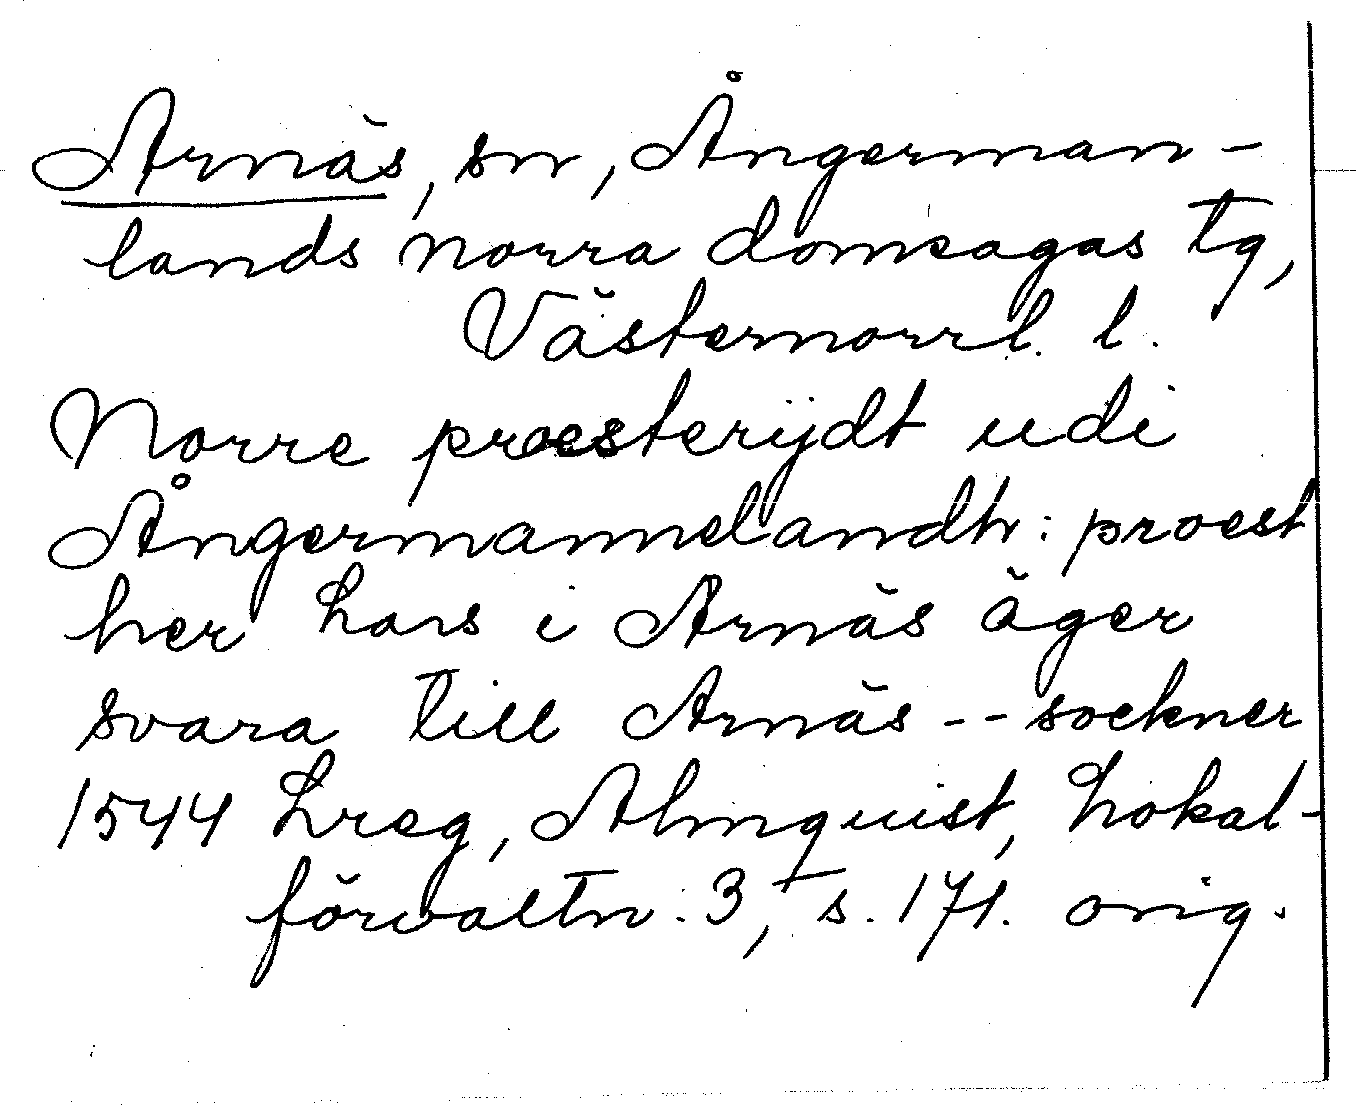 Arnäs, sn, Ångerman-
lands norra domsagas tg,
Västernorrl. l.
Norre præsterijdt udi
Ångermannelandh: præst
her Lars i Arnäs äger
svara till Arnäs -- sockner
1544 Lreg, Almquist, Lokal-
förvaltn. 3, s. 171. orig.